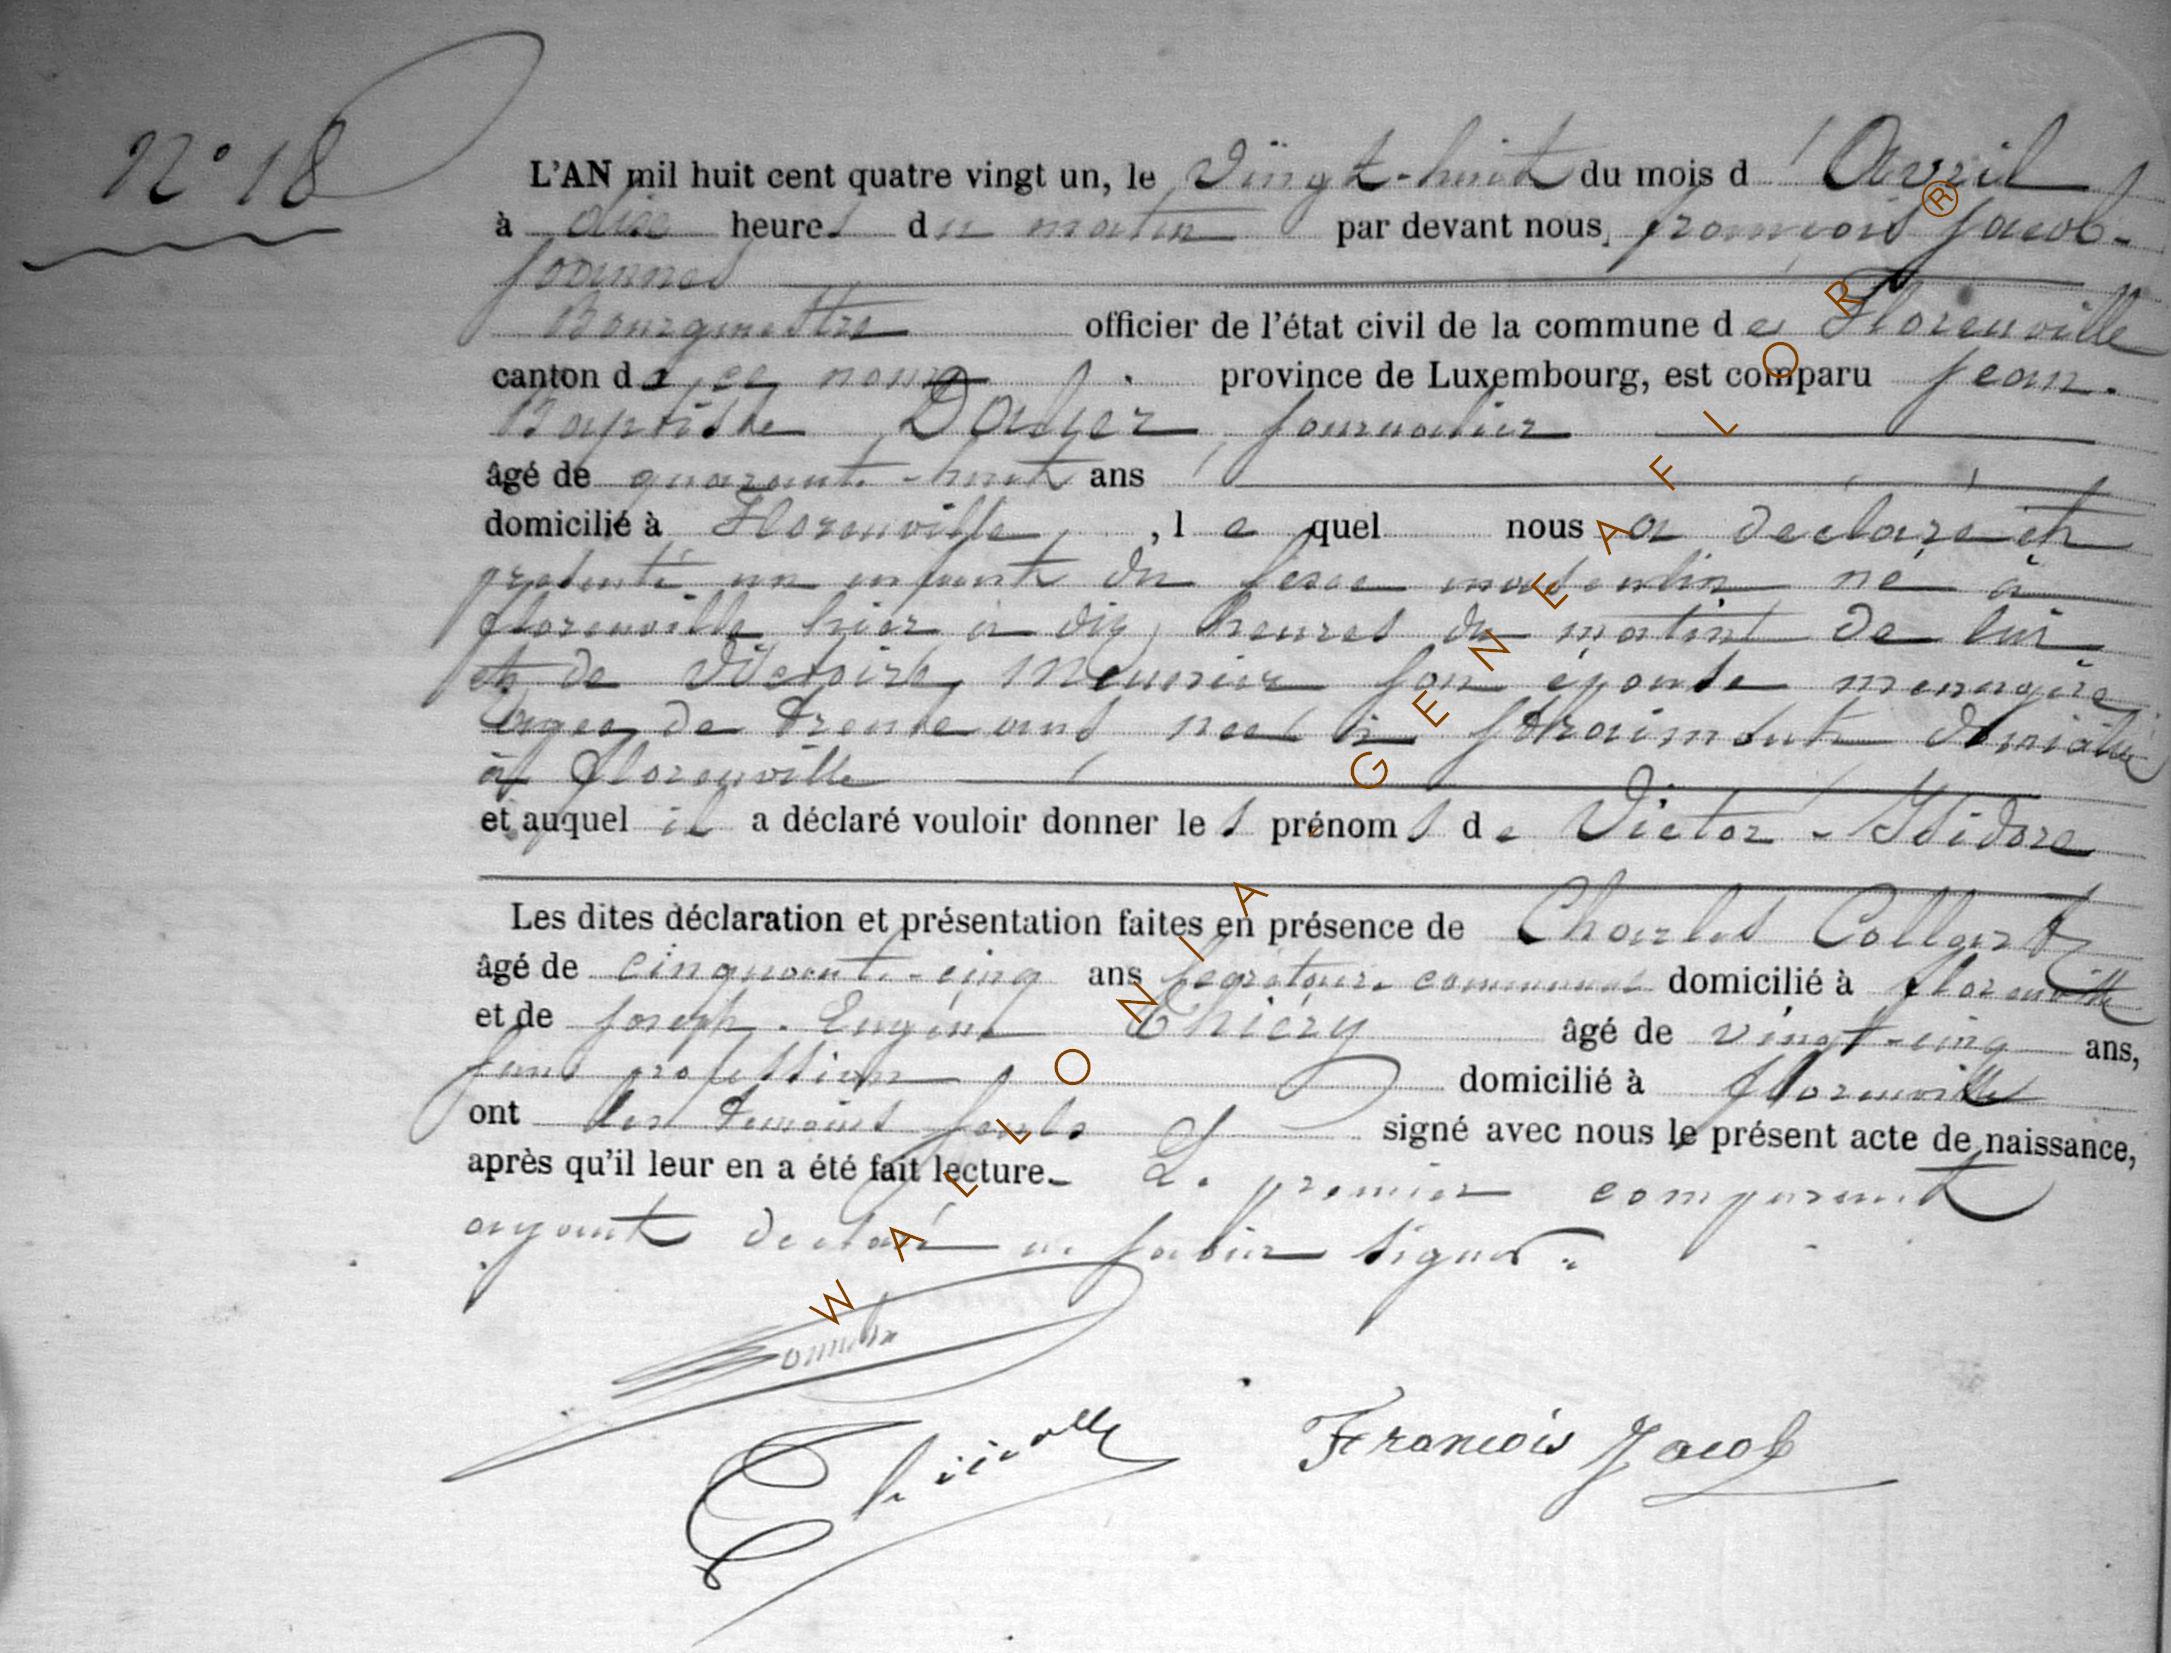 N° 18
L'AN mil huit cent quatre vingt un, le Vingt-huit du mois d'Avril
à dix heures du matin par devant nous, françois Jacob-
Joannes
Bourgmestre officier de l'état civil de la commune de Florenville
canton de ce nom province de Luxembourg, est comparu Jean-
Baptiste journalier
âgé de quarante-huit ans
domicilié à Florenville, lequel nous a déclaré et
présenté un enfant du sexe masculin né à
florenville hier à dix heures du matin de lui
et de Victoire Meunier son épouse menagère
agée de trente ans née à Straimont domicilié
à florenville
et auquel il a déclaré vouloir donner les prénoms de Victor-Isidore
Les dites déclaration et présentation faites en présence de Charles Collart
âgé de cinquante-cinq ans secrétaire communal domicilié à florenville
et de Joseph-Eugène Thiéry âgé de vingt-cinq ans,
sans profession domicilié à florenville
ont les témoins seuls signé avec nous le présent acte de naissance,
après qu'il leur en a été fait lecture. Le premier comparant
ayant déclaré ne savoir signer.
François Jacob
WALLONIA GENEAFLOR ®